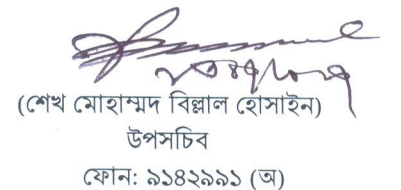 (শেখ মোহাম্মদ বিল্লাল হোসাইন)
উপসচিব
ফোন: ৯১৪২৯৯১ (অ)